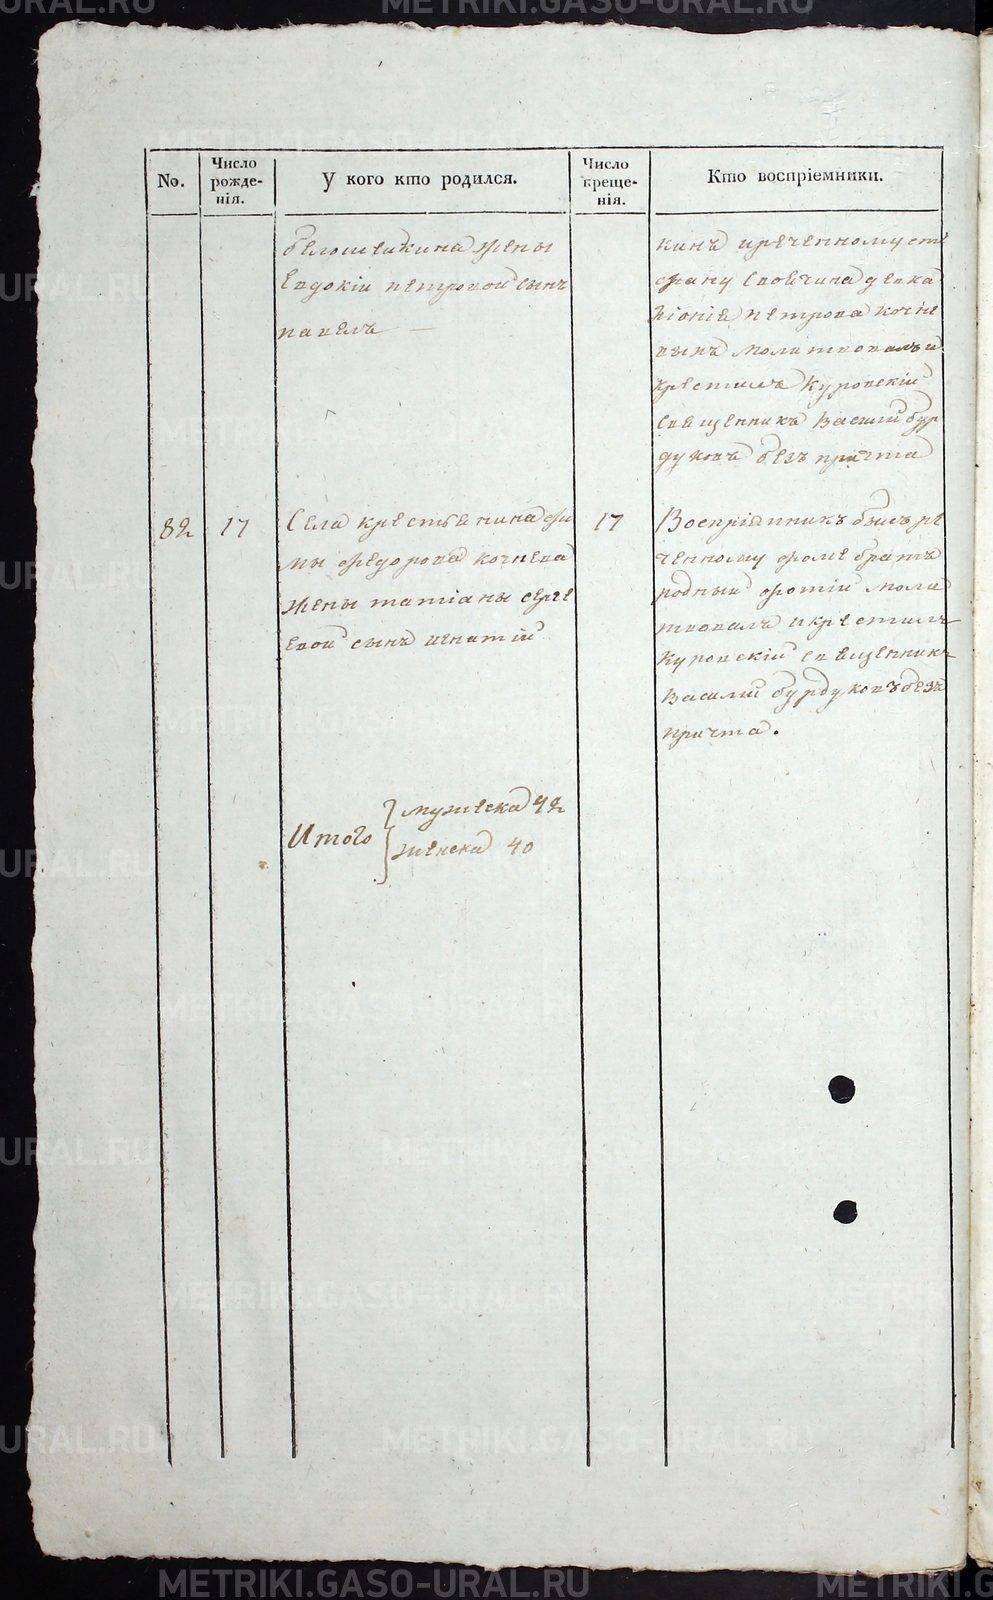 No.
Число рожде-нія.
У кого кто родился.
Число креще-нія.
Кто воспріемники.
белошейкина жены
Евдокіи петровой сынъ
павелъ
кинъ
свойчина девка
петрова кочне
выхъ молитвовалъ и
крестилъ Куровскій
священникъ Василій бур
дуковъ безъ причта
82
17
Села крестьянина фо
мы федорова кочнева
жены татіаны серге
евой сынъ игнатій
17
Воспріемникъ былъ ре
ченному фоме братъ
родный фотій моли
твовалъ и крестилъ
Куровскій священникъ
Василій бурдуковъ безъ
причта.
Итого
мужеска 42
женска 40
METRIKI.GASO-URAL.RU